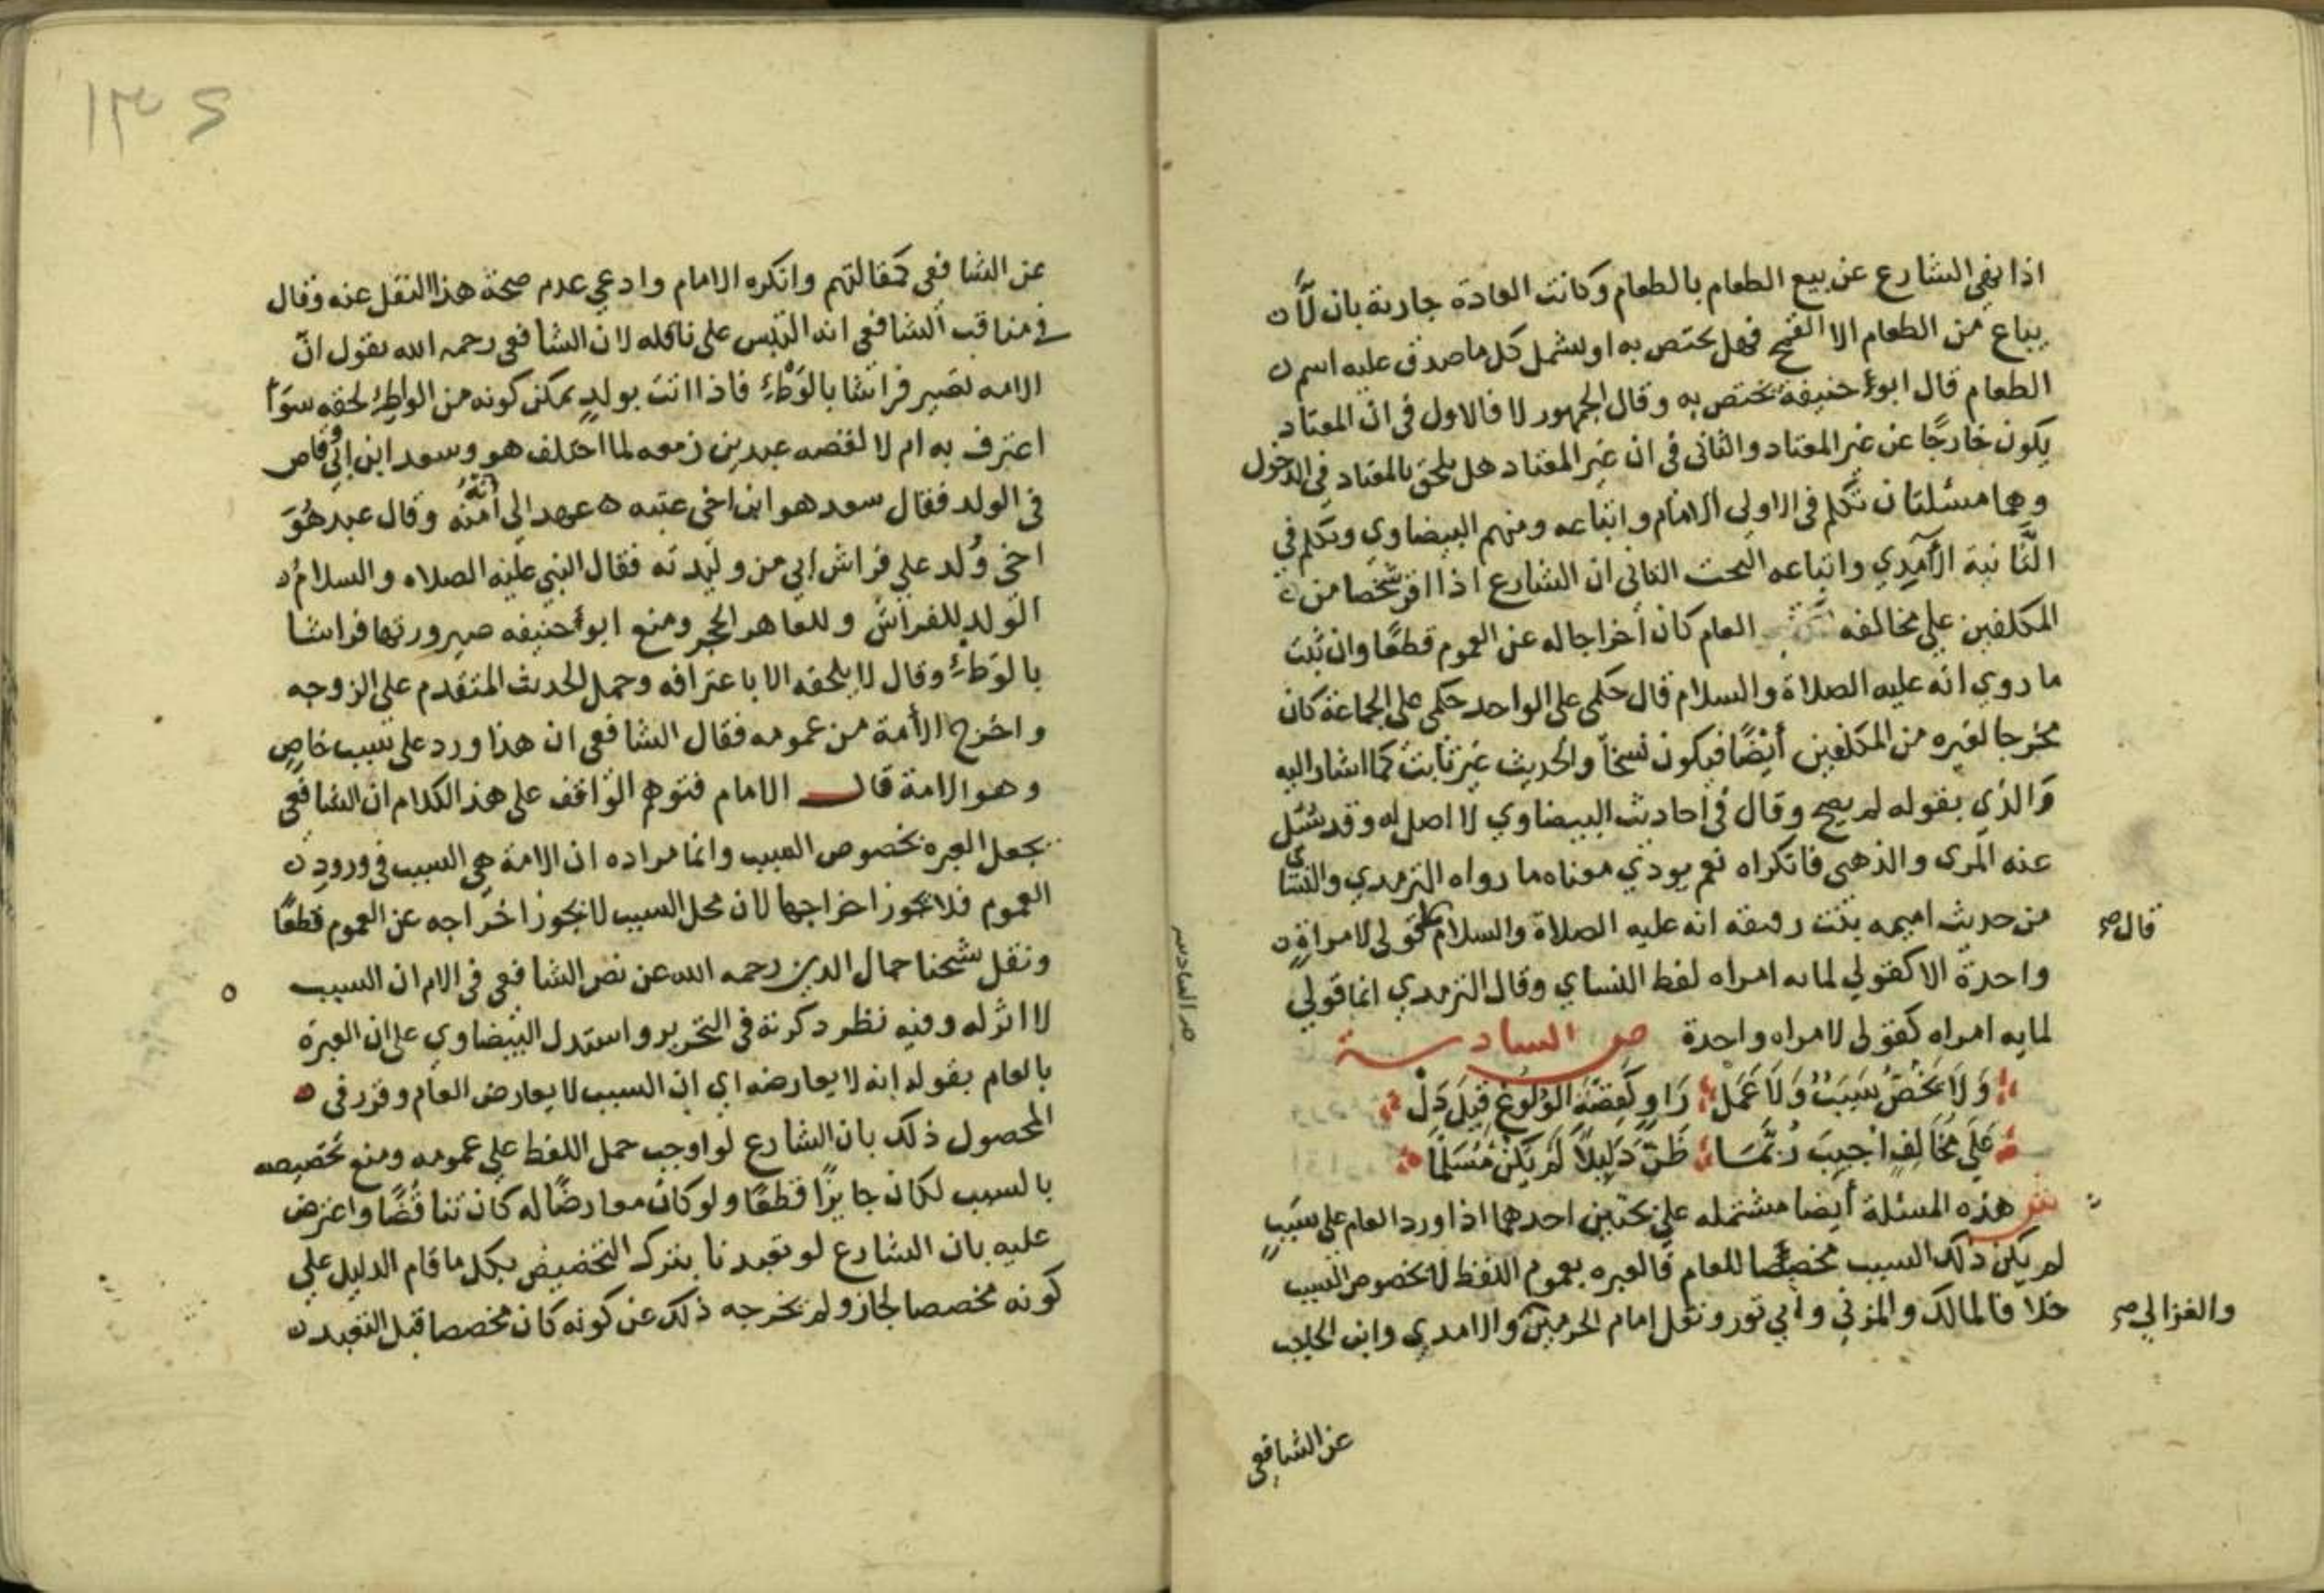 اذا نهى الشارع عن بيع الطعام بالطعام وكانت العادة جارية بان لا
يباع من الطعام الا القمح فهل يختص به او يشمل كل ما صدق عليه اسم
الطعام قال ابو حنيفة يختص به وقال الجمهور لا فالاول في ان المعتاد
يكون خارجًا عن غير المعتاد والثاني في ان غير المعتاد هل يلحق بالمعتاد في الدخول
وهما مسئلتان تكلم في الاولى الامام واتباعه ومنهم البيضاوي وتكلم في
الثانية الآمدي واتباعه البحث الثاني ان الشارع اذا اقر شخصا من
المكلفين على مخالفه العام كان اخراجا له عن العموم قطعًا وان ثبت
ما روي انه عليه الصلاة والسلام قال حكمي على الواحد حكمي على الجماعة كان
مخرجا لغيره من المكلفين أيضًا فيكون نسخاً والحديث غير ثابت كما اشار اليه
والدي بقوله لم يصح وقال في احاديث البيضاوي لا اصل له وقد سئل
عنه المزى والذهبى فانكراه نعم يودي معناه ما رواه الترمدي والنسائي
من حديث اميمه بنت رقيقه انه عليه الصلاة والسلام قال ما قولى لامراة
واحدة الا كقولي لمايه امراه لفظ النساي وقال الترمدي انما قولي
لمايه امراه كقولى لامراه واحدة ص السادسة
وَلَا يَخُصُّ سَبَبٌ وَلَا عَمَل رَاوٍ كَقِصَّةِ الوُلُوغِ قِيلَ دَلْ
عَلَى مُخَالِفٍ اُجِيبَ رُبَّمَا ظَنَّ دَلِيلاً لَمْ يَكُنْ مُسَلَّمَا
ش هذه المسئلة أيضا مشتمله على بحثين احدهما اذا ورد العام على سببٍ
لم يكن ذلك السبب مخصصا للعام فالعبره بعموم اللفظ لا بخصوص السبب
خلافا لمالك والمزني وابي ثور ونقل امام الحرمين والامدي وابن الحاجب
والغزالي صح
عن الشافعي
ص السادسه
١٣٤
عن الشافعى كمقالتهم وانكره الامام وادعى عدم صحة هذا النقل عنه وقال
في مناقب الشافعي انه التبس على ناقله لان الشافعى رحمه الله يقول انّ
الامه تصير فراشا بالوَطْءِ فاذا اتت بولدٍ يمكن كونه من الواطِئ لحقه سوَآ
اعترف به ام لا لقصه عبد بن زمعه لما اختلف هو وسعد ابن ابي وقاص
فى الولد فقال سعد هو ابن اخى عتبه عهد الي انه منه وقال عبد هُوَ
اخى وُلد علي فراش ابي من وليدته فقال النبي عليه الصلاه والسلام
الولد للفراش وللعاهر الحجر ومنع ابو حنيفه صيرورتها فراشا
بالوَطْءِ وقال لا يلحقه الا باعترافه وحمل الحديث المتقدم على الزوجه
واخرج الأمة من عمومه فقال الشافعى ان هذا ورد على سبب خاص
وهو الامة قال الامام فتوهم الواقف على هذا الكلام ان الشافعى
يجعل العبره بخصوص السبب وانما مراده ان الامة هى السبب في ورود
العموم فلا يجوز اخراجها لان محل السبب لا يجوز اخراجه عن العموم قطعًا
ونقل شيخنا جمال الدين رحمه الله عن نص الشافعى فى الام ان السبب
لا اثر له وفيه نظر ذكرته فى التحرير واستدل البيضاوي على ان العبرة
بالعام بقوله انه لا يعارضه اي ان السبب لا يعارض العام وقرر فى
المحصول ذلك بان الشارع لو اوجب حمل اللفظ علي عمومه ومنع تخصيصه
بالسبب لكان جايزًا قطعًا ولو كان معارضًا له كان تناقُضًا واعترض
عليه بان الشارع لو تعبدنا بترك التخصيص بكل ما قام الدليل علي
كونه مخصصا لجاز ولم يخرجه ذلك عن كونه كان مخصصا قبل التعبد